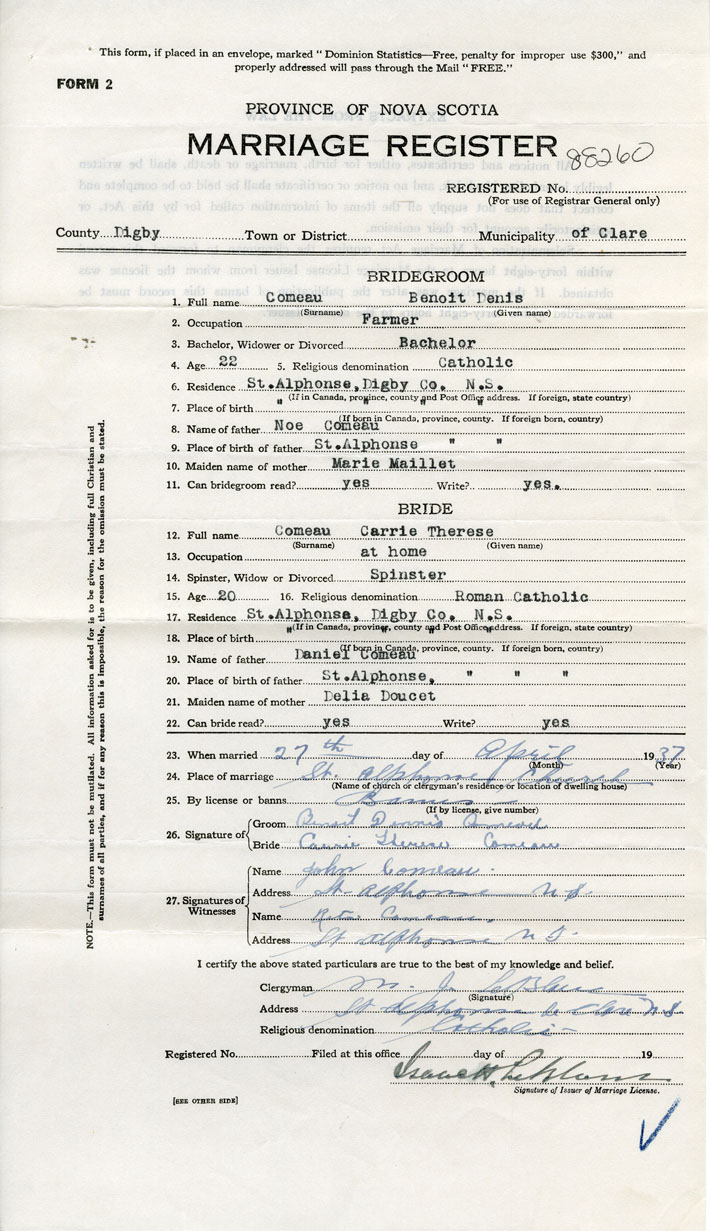 This form, if placed in an envelope, marked "Dominion Statistics—Free, penalty for improper use $300," and
properly addressed will pass through the Mail "FREE."
FORM 2
PROVINCE OF NOVA SCOTIA
MARRIAGE REGISTER 88260
REGISTERED No.
(For use of Registrar General only)
County Digby Town or District Municipality of Clare
BRIDEGROOM
1. Full name Comeau Benoit Denis
(Surname) (Given name)
2. Occupation Farmer
3. Bachelor, Widower or Divorced Bachelor
4. Age 22 5. Religious denomination Catholic
6. Residence St.Alphonse,Digby Co. N.S.
(If in Canada, province, county and Post Office address. If foreign, state country)
7. Place of birth " " " "
(If born in Canada, province, county. If foreign born, country)
8. Name of father Noe Comeau
9. Place of birth of father St.Alphonse " "
10. Maiden name of mother Marie Maillet
11. Can bridegroom read? yes Write? yes.
BRIDE
12. Full name Comeau Carrie Therese
(Surname) (Given name)
13. Occupation at home
14. Spinster, Widow or Divorced Spinster
15. Age 20 16. Religious denomination Roman Catholic
17. Residence St.Alphonse, Digby Co. N.S.
(If in Canada, province, county and Post Office address. If foreign, state country)
18. Place of birth " " " "
(If born in Canada, province, county. If foreign born, country)
19. Name of father Daniel Comeau
20. Place of birth of father St.Alphonse, " " "
21. Maiden name of mother Delia Doucet
22. Can bride read? yes Write? yes
23. When married 27th day of April 1937
(Month) (Year)
24. Place of marriage St. Alphonse Church
(Name of church or clergyman's residence or location of dwelling house)
25. By license or banns Banns
(If by license, give number)
26. Signature of
Groom Benoit Dennis Comeau
Bride Carrie Therese Comeau
27. Signatures of Witnesses
Name John Comeau
Address St. Alphonse N S.
Name Rita Comeau
Address St Alphonse N S.
I certify the above stated particulars are true to the best of my knowledge and belief.
Clergyman M. J. LeBlanc
(Signature)
Address St Alphonse de Clare N S
Religious denomination Catholic
Registered No. Filed at this office day of 19
LeBlanc
Signature of Issuer of Marriage License.
[SEE OTHER SIDE]
NOTE.—This form must not be mutilated. All information asked for is to be given, including full Christian and
surnames of all parties, and if for any reason this is impossible, the reason for the omission must be stated.